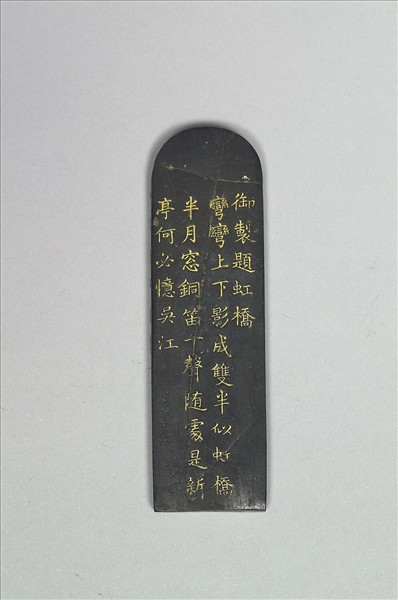 御製題虹橋
彎彎上下影成雙半似虹橋
半月窓銅笛一聲随處是新
亭何必憶吳江